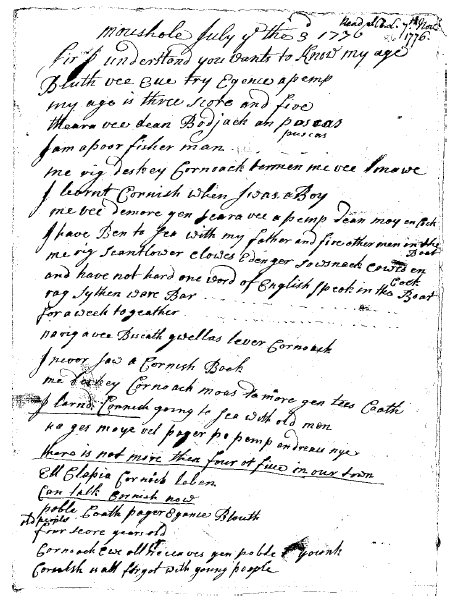 mousehole July yᵉ the 3ᵈ 1776
Sir I understand you wants to know my age
Bluth vee Eue try Egence a pemp
my age is three score and five
theara vee dean Bodjack an poscas
puscas
I am a poor fisher man
me rig deskey Cornoack termen me vee maw
I learnt Cornish when I was a Boy
me vee demore gen seara vee a pemp dean moy en Cock
I have Ben to Sea with my father and five other men in the
Boat
me rig scantlower clowes Edenger sowsnack cowes en
Cock
and have not hard one word of English speek in the Boat
rag sythen ware Bar
for a week to geather
na rig a vee Biscath gwellas lever Cornoack
I never saw a Cornish Book
me deskey Cornoack moas da more gen tees Coath
I larnd Cornish going to Sea with old men
na ges moye vel pager po pemp en dreau nye
there is not more then four or five in our town
Ell Clapia Cornick leben
Can talk Cornish now
poble Coath pager Egance Blouth
old people
four score years old
Cornoack Ewe all ne ceaves gen poble younk
Cornish is all forgot with young people